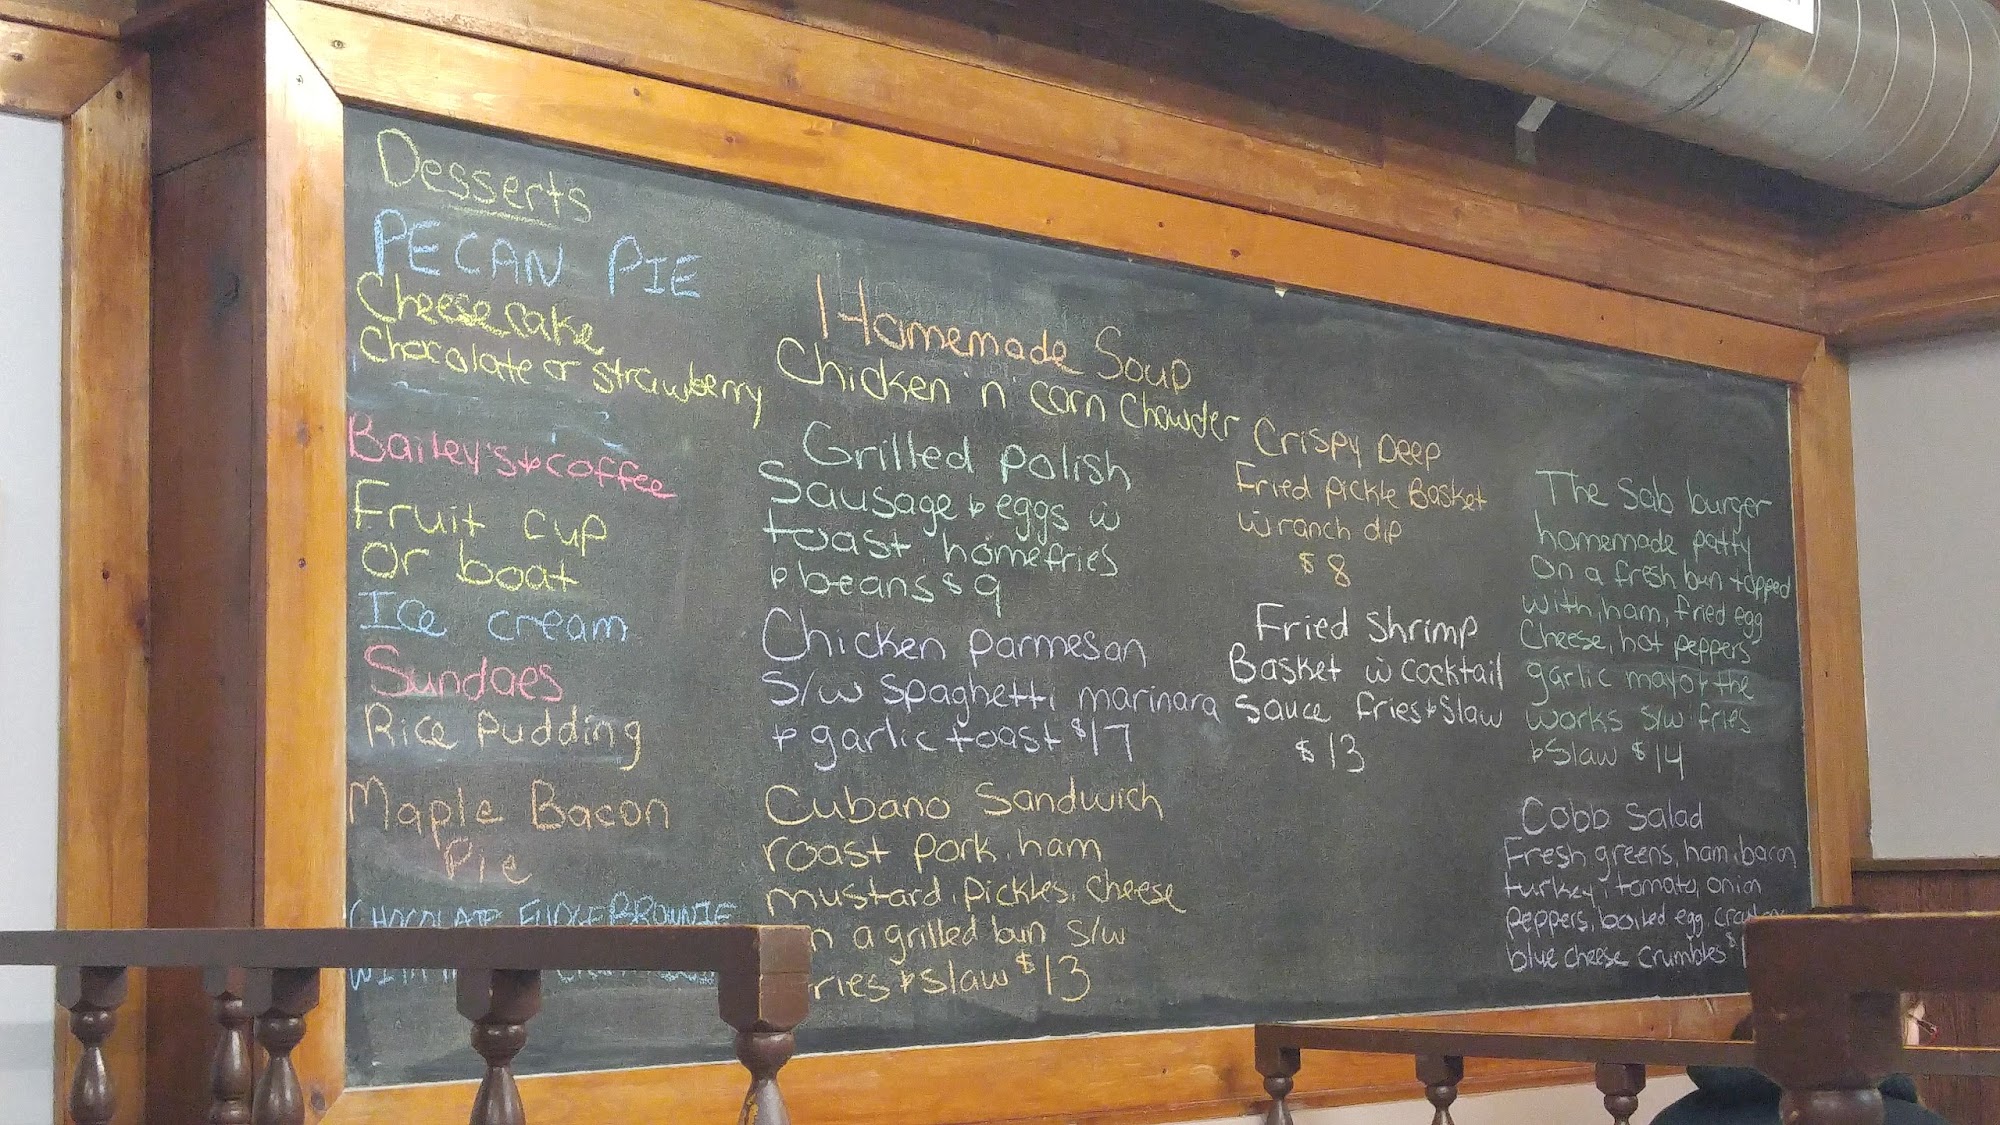 Desserts
PECAN PIE
Cheesecake
Chocolate or strawberry
Bailey's & coffee
Fruit cup
or boat
Ice cream
Sundaes
Rice Pudding
Maple Bacon
Pie
CHOCOLATE FUDGE BROWNIE
WITH
Homemade Soup
Chicken 'n' corn chowder
Grilled polish
Sausage & eggs w
toast homefries
& beans $9
Chicken parmesan
S/w spaghetti marinara
& garlic toast $17
Cubano Sandwich
roast pork, ham
mustard, pickles, cheese
n a grilled bun s/w
ries & slaw $13
Crispy Deep
Fried pickle Basket
w ranch dip
$8
Fried Shrimp
Basket w cocktail
Sauce fries & slaw
$13
The Sab burger
homemade patty
On a fresh bun topped
with, ham, fried egg
Cheese, hot peppers
garlic mayo & the
works s/w fries
& slaw $14
Cobb Salad
Fresh greens, ham, bacon
turkey, tomato, onion
Peppers, boiled egg,
blue cheese crumbles $1